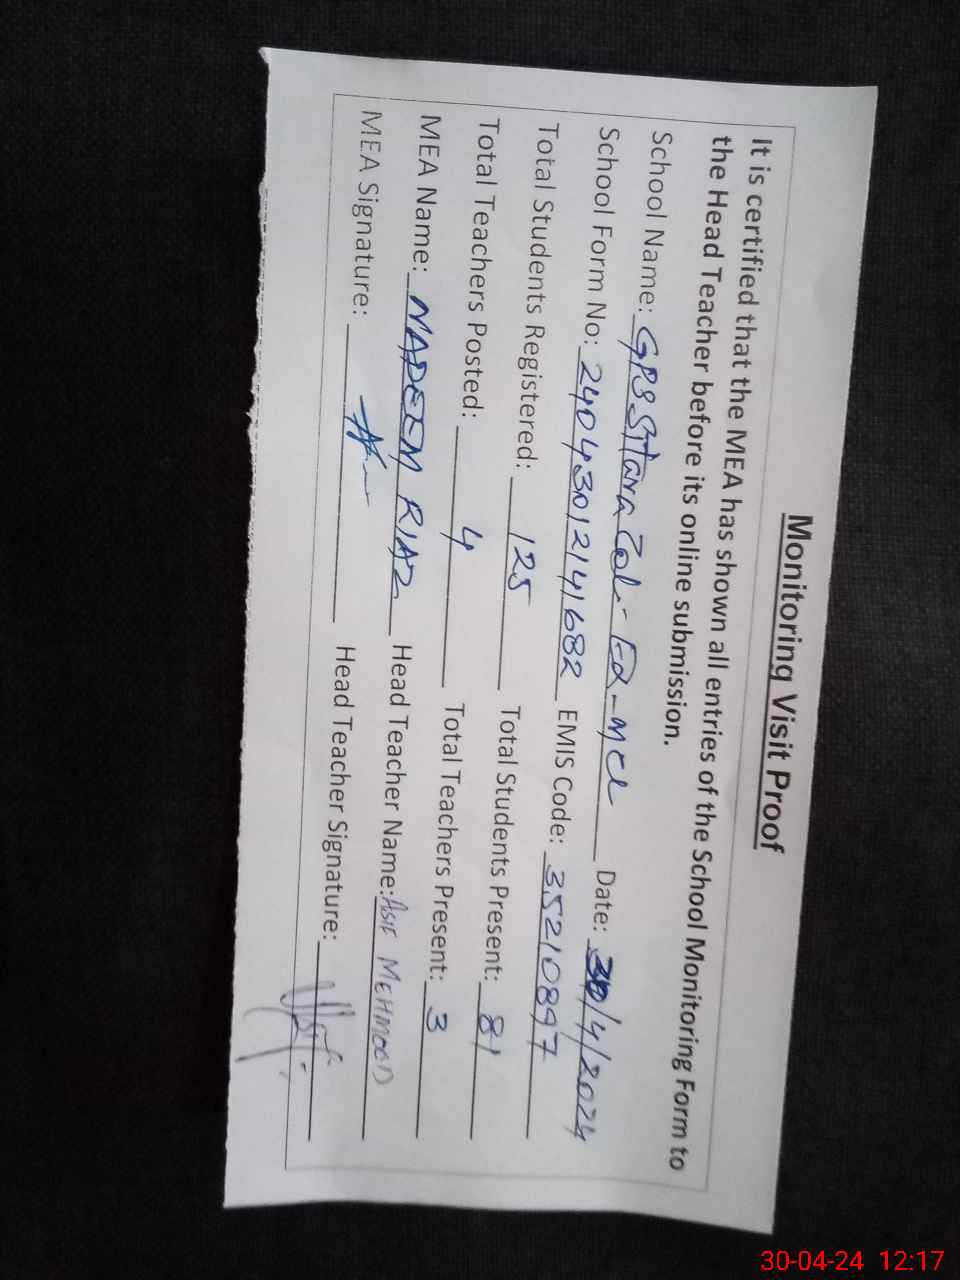 Monitoring Visit Proof
It is certified that the MEA has shown all entries of the School Monitoring Form to
the Head Teacher before its online submission.
School Name: GPS Sitara Col: Ed-MCL Date: 30/4/2024
School Form No: 24043012141682 EMIS Code: 35210897
Total Students Registered: 125 Total Students Present: 81
Total Teachers Posted: 4 Total Teachers Present: 3
MEA Name: NADEEM RIAZ Head Teacher Name: ASIF MEHMOOD
MEA Signature: Head Teacher Signature:
30-04-24 12:17